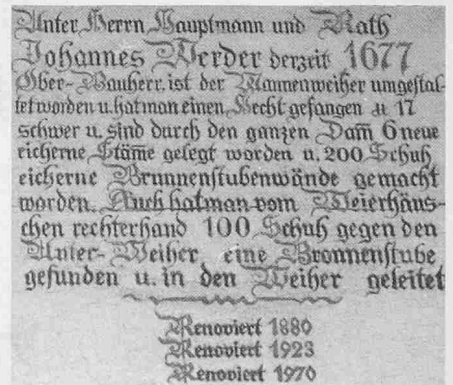 Unter Herrn Hauptmann und Rath
Johannes Werder derzeit 1677
Ober-Bauherr, ist der Wannenweiher umgestal-
tet worden u. hat man einen Hecht gefangen 17
schwer u. sind durch den ganzen Dam̄ 6 neue
eicherne Stäm̄e gelegt worden u. 200 Schuh
eicherne Brunnenstubenwände gemacht
worden. Auch hat man vom Weierhäus-
chen rechterhand 100 Schuh gegen den
Unter-Weiher eine Bronnenstube
gefunden u. in den Weiher geleitet
Renoviert 1880
Renoviert 1923
Renoviert 1970